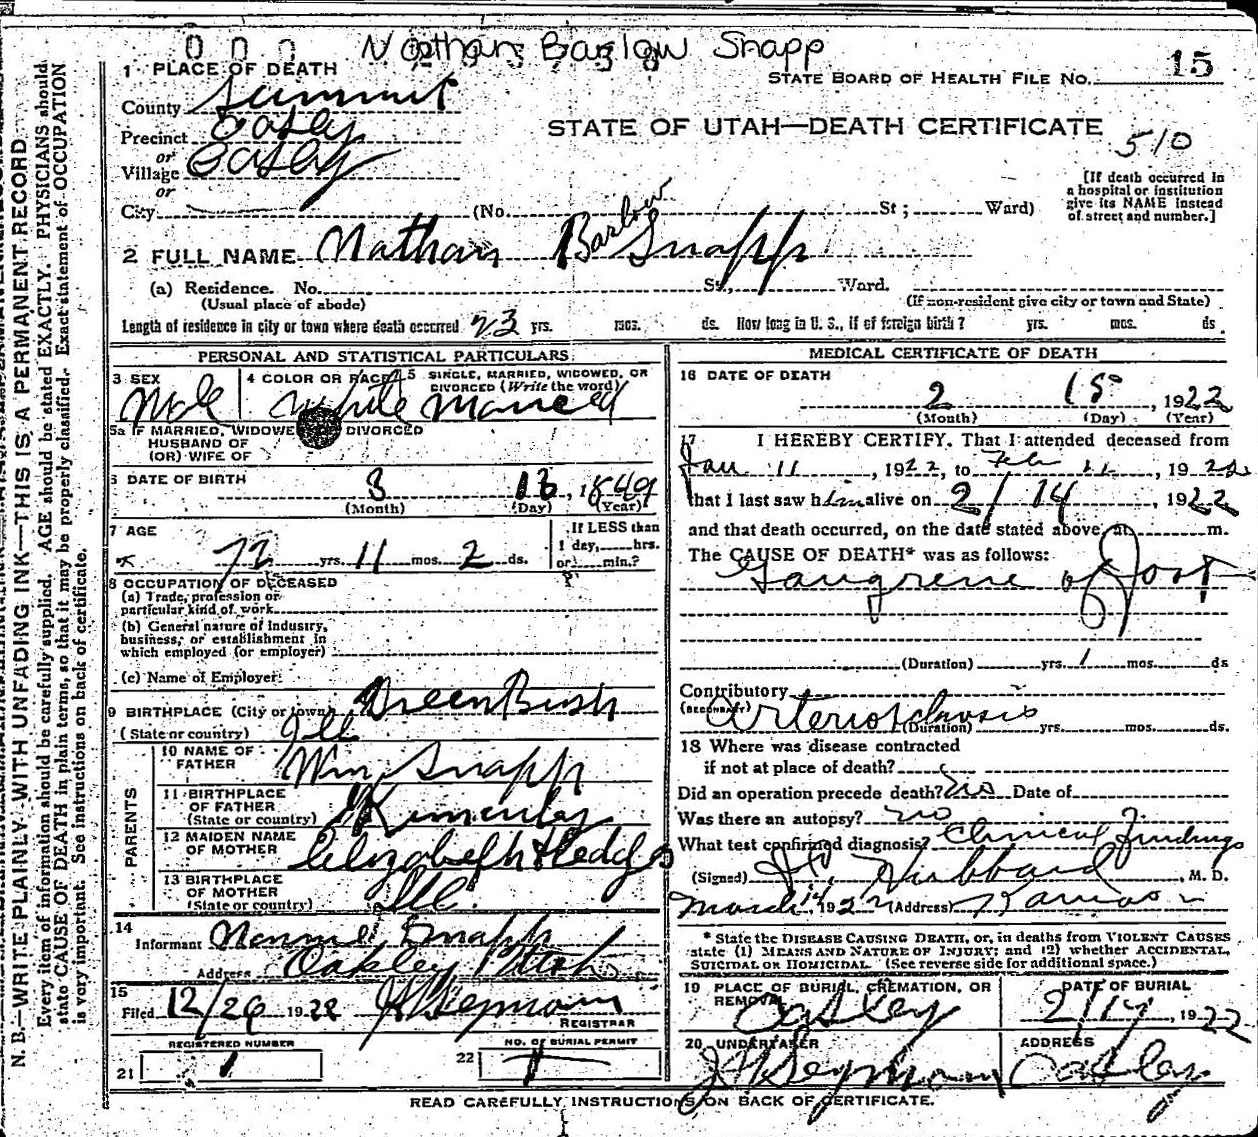 000 Nathan Barlow Snapp
15
1 PLACE OF DEATH
STATE BOARD OF HEALTH FILE NO.
County Summit
STATE OF UTAH—DEATH CERTIFICATE
510
Precinct Oakley
or
Village Oakley
or
[If death occurred in
a hospital or institution
give its NAME instead
of street and number.]
City (No. St ; Ward)
2 FULL NAME Nathan Barlow Snapp
(a) Residence. No. St., Ward.
(Usual place of abode) (If non-resident give city or town and State)
Length of residence in city or town where death occurred 23 yrs. mos. ds. How long in U. S., if of foreign birth? yrs. mos. ds.
PERSONAL AND STATISTICAL PARTICULARS.
3 SEX Male
4 COLOR OR RACE White
5 SINGLE, MARRIED, WIDOWED, OR
DIVORCED (Write the word) Married
5a IF MARRIED, WIDOWED DIVORCED
HUSBAND OF
(OR) WIFE OF
6 DATE OF BIRTH 3 13, 1849
(Month) (Day) (Year)
7 AGE 72 yrs. 11 mos. 2 ds.
If LESS than
1 day, hrs.
or min.?
8 OCCUPATION OF DECEASED
(a) Trade, profession or
particular kind of work
(b) General nature of Industry,
business, or establishment in
which employed (or employer)
(c) Name of Employer
9 BIRTHPLACE (City or town) Green Bush
(State or country) Ill
PARENTS
10 NAME OF
FATHER Wm Snapp
11 BIRTHPLACE
OF FATHER
(State or country)
12 MAIDEN NAME
OF MOTHER Elizabeth Hedges
13 BIRTHPLACE
OF MOTHER
(State or country) Ill.
14
Informant Snapp
Address Oakley Utah
15
Filed 12/26 1922 J H Seymour
REGISTRAR
REGISTERED NUMBER
21 1
NO. OF BURIAL PERMIT
22 1
MEDICAL CERTIFICATE OF DEATH
16 DATE OF DEATH
2 15, 1922
(Month) (Day) (Year)
17 I HEREBY CERTIFY, That I attended deceased from
Jan 11, 1922, to Feb 11, 1922
that I last saw him alive on 2/14, 1922
and that death occurred, on the date stated above, at m.
The CAUSE OF DEATH* was as follows:
Gangrene of foot
(Duration) yrs. 1 mos. ds
Contributory
(SECONDARY) (Duration) yrs. mos. ds.
18 Where was disease contracted
if not at place of death?
Did an operation precede death? No Date of
Was there an autopsy? no
What test confirmed diagnosis? Clinical Findings
(Signed) Hubbard, M. D.
March 14, 1922 (Address) Kamas
* State the DISEASE CAUSING DEATH, or, in deaths from VIOLENT CAUSES
state (1) MEANS AND NATURE OF INJURY; and (2) whether ACCIDENTAL,
SUICIDAL OR HOMICIDAL. (See reverse side for additional space.)
19 PLACE OF BURIAL, CREMATION, OR
REMOVAL Oakley
DATE OF BURIAL
2/17, 1922
20 UNDERTAKER
J H Seymour
ADDRESS
Oakley
READ CAREFULLY INSTRUCTIONS ON BACK OF CERTIFICATE.
N. B.—WRITE PLAINLY, WITH UNFADING INK—THIS IS A PERMANENT RECORD
Every item of information should be carefully supplied. AGE should be stated EXACTLY. PHYSICIANS should
state CAUSE OF DEATH in plain terms, so that it may be properly classified. Exact statement of OCCUPATION
is very important. See instructions on back of certificate.